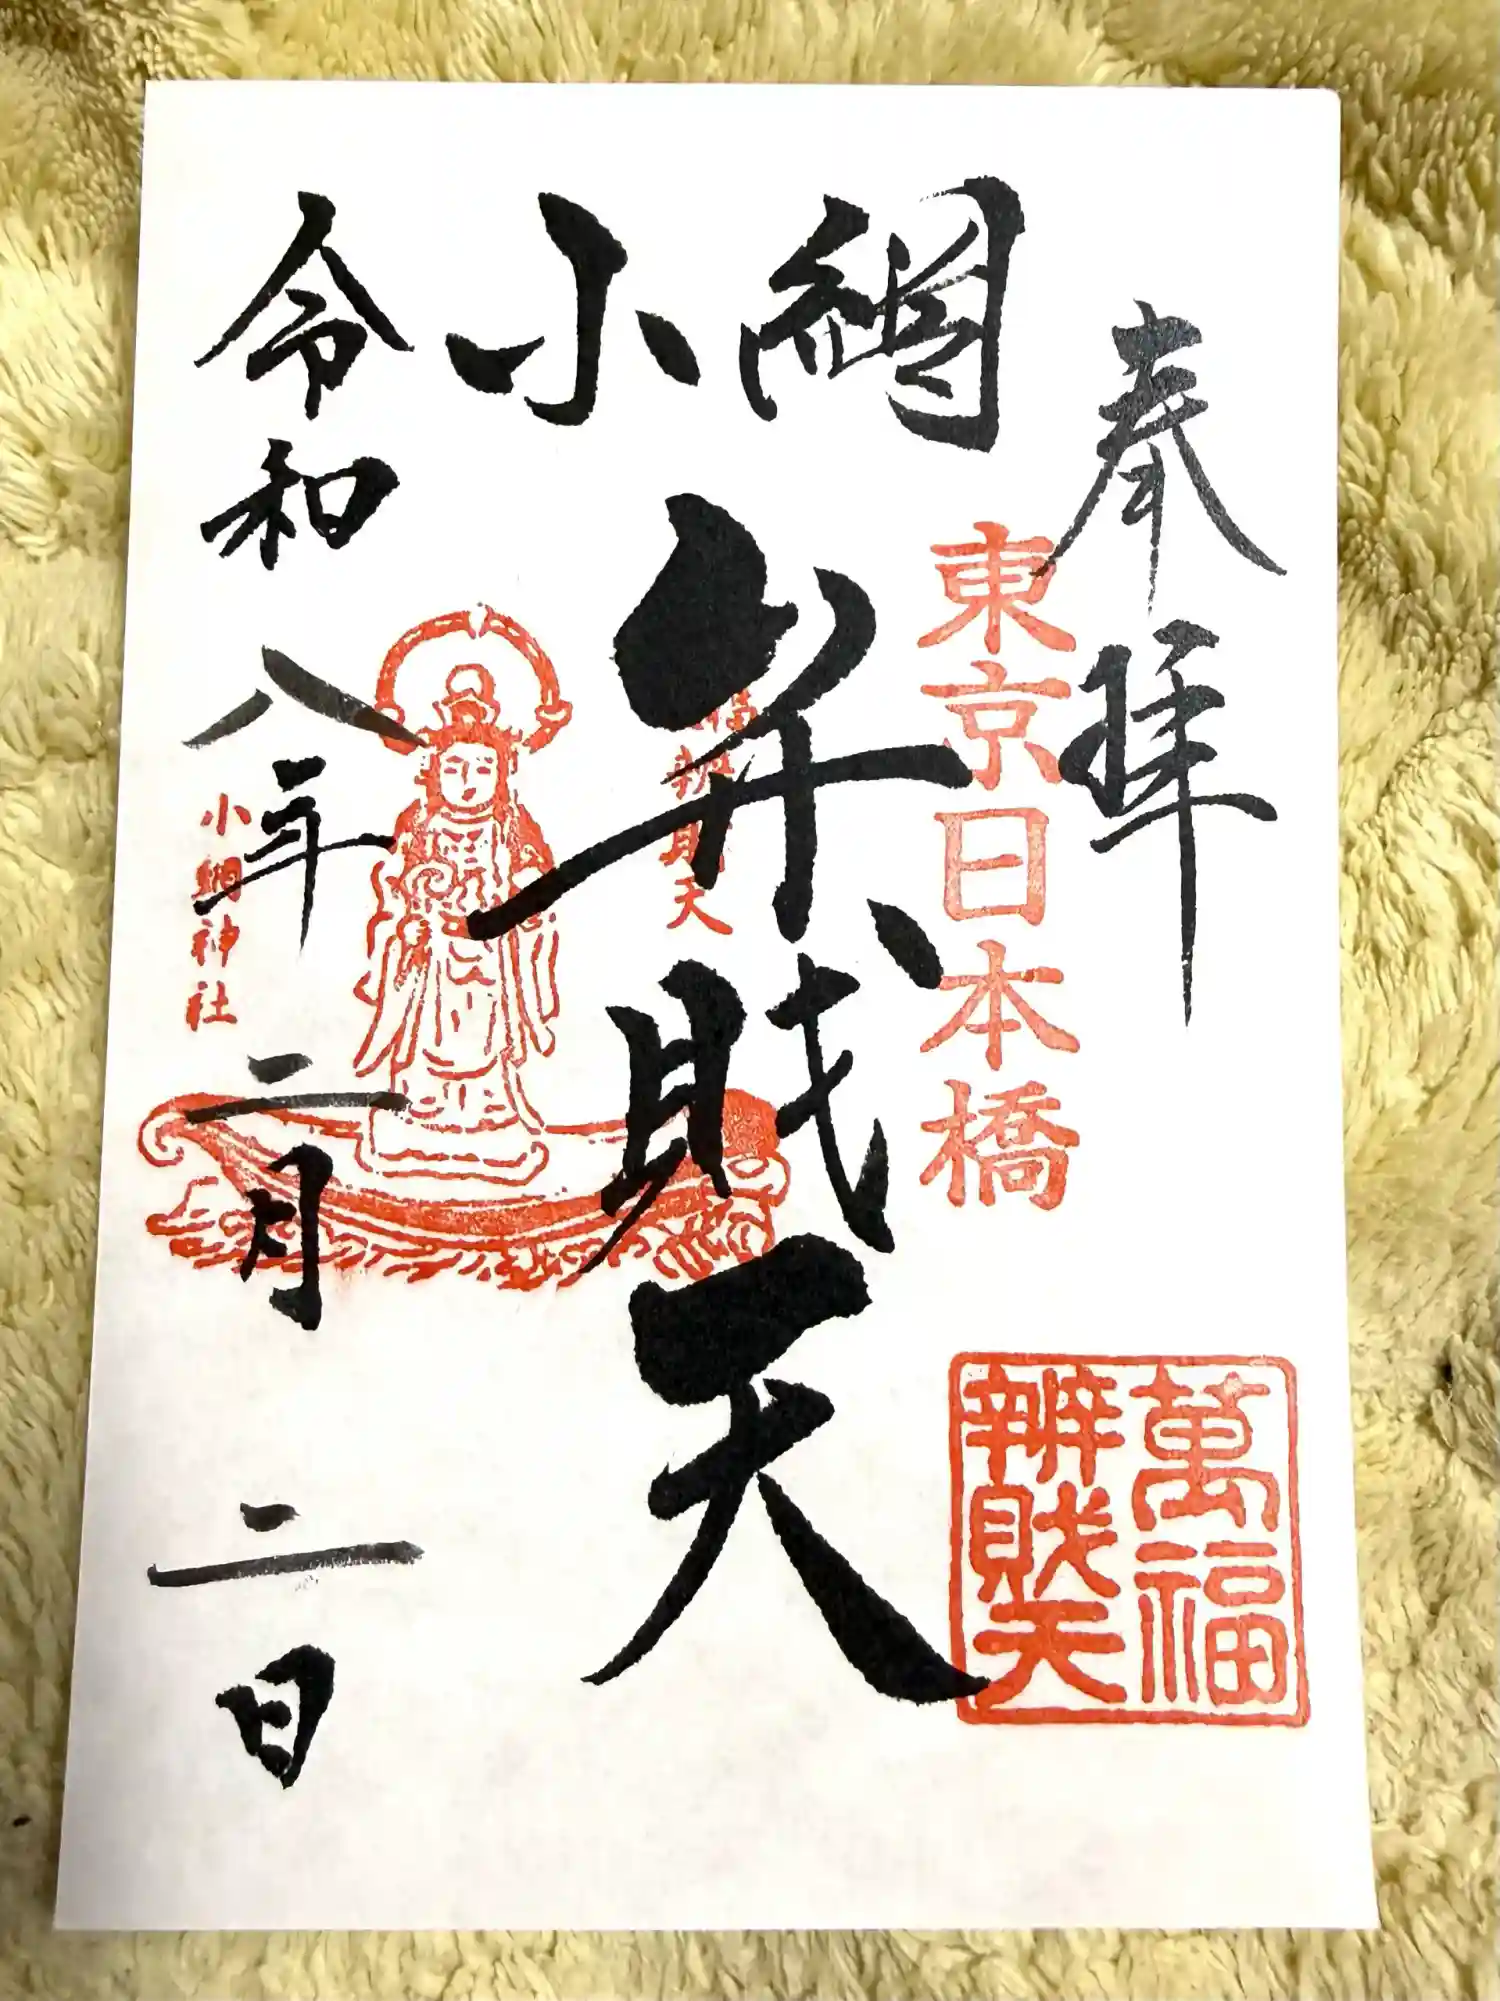 奉拝
東京日本橋
萬福
辨財天
小網
弁財天
令和八年二月二日
小網神社